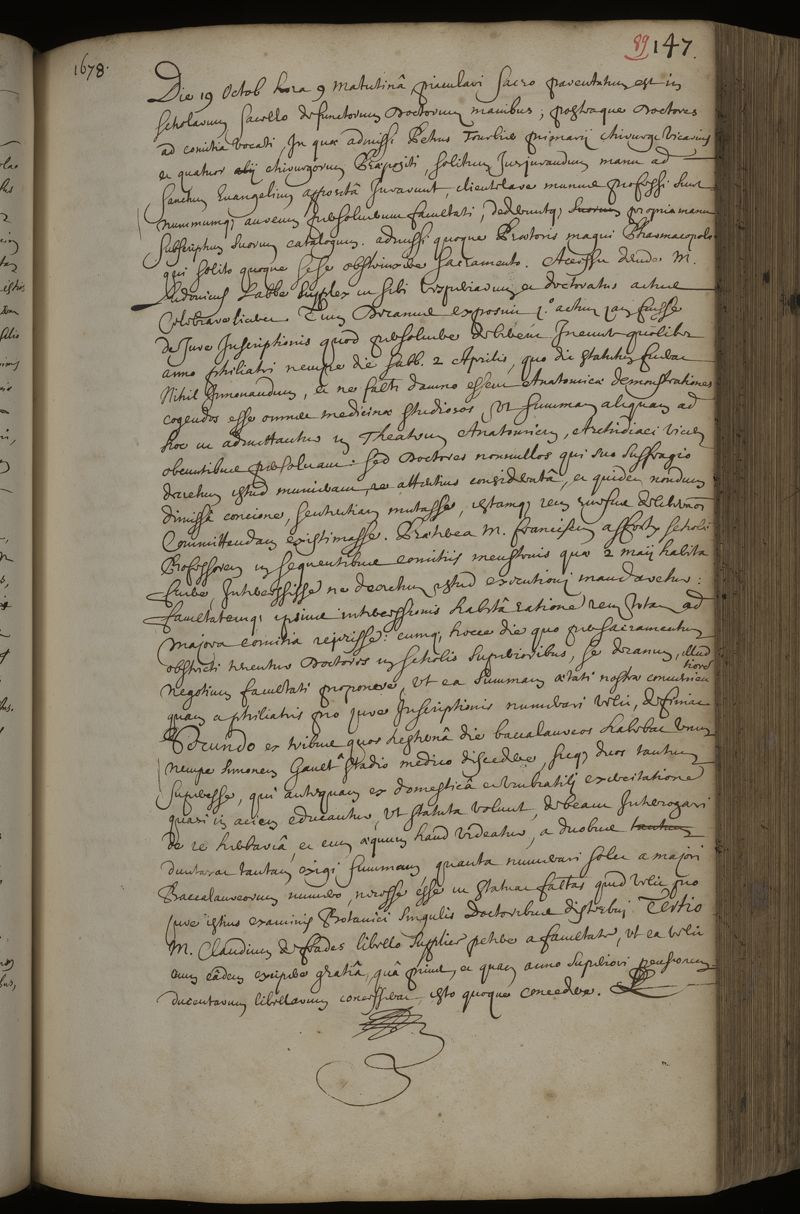 1678.
89 147.
Die 19 Octob hora 9 Matutinâ piaculari Sacro parentatum est in
Scholarum Sacello defunctorum Doctorum manibus; postraque Doctores
ad comitia vocati, In quae admissi Petrus primarii chirurgi vicarius
et quatuor alij chirurgorum Praepositi, solitum Jusjurandum manu ad
Sanctum Evangelium appositâ Jurarunt, clientelare munus professi sunt
nummumq; aureum persolverunt facultati, dederuntq; suorum propria manu
subscriptum suorum catalogum. admissi quoque Praetores magni Pharmacopolae
qui solito quoque sese obstrinxere Sacramento. Accessit deinde M.
Ludovicus Labbe supplex ut sibi vesperiarum et doctoratus actus
celebrare liceat. Tum Decanus exposuit 1.º actum jam fuisse
de Jure Inscriptionis quod persolvere debent Ineunte quolibet
anno philiatri nempe die sabb. 2 Aprilis, quo die statutum fuerat
Nihil Innovandum, et ne facti damno essent Anatomicae demonstrationes
cogendos esse omnes medicinae studiosos, ut summam aliquam ad
hoc ut admittantur in Theatrum Anatomicum, Archidiaci vicem
obeuntibus persolvant: sed Doctores nonnullos qui suo suffragio
decretum istud munierant, re attentius consideratâ, et quidem nondum
dimissâ concione, sententiam mutasse, istamq; rem rursus
Committendam existimasse. Praeterea M. Franciscum scholae
Professorem in sequentibus comitiis menstruis quae 2 maij habita
fuere, Intercessisse ne decretum istud executioni mandaretur:
facultatemq; ipsius intercessionis habitâ ratione rem totam ad
majora comitia rejecisse: cumq; hocce die quo per sacramentum
obstricti tenentur Doctores in scholis superioribus, se decanum, illud
negotium facultati proponere, ut ea summam aetati nostrae convenientiorem
quam a philiatris pro jure Inscriptionis numerari velit, definiat
Secundo ex tribus quos hesternâ die baccalaureos habebat unum
nempe Simonem Gaulet â stadio medico discedere, sicq; duos tantum
superesse, qui antequam ex domesticâ et umbratili exercitatione
quasi in aciem educantur, ut statuta volunt, debeant Interrogari
de re herbariâ, et cum aequum haud videatur, a duobus tantum
duntaxat tantam exigi summam, quanta numerari solet a majori
Baccalaureorum numero, necesse esse ut statuat facultas quid velit pro
jure istius examinis Botanici singulis Doctoribus distribui Tertio
M. Claudium de frades libello supplici petere a facultate, ut ea velit
eum eâdem excipere gratiâ, quâ prius, et quam anno superiori pensionem
ducentarum librarum concesserat, isto quoque concedere.